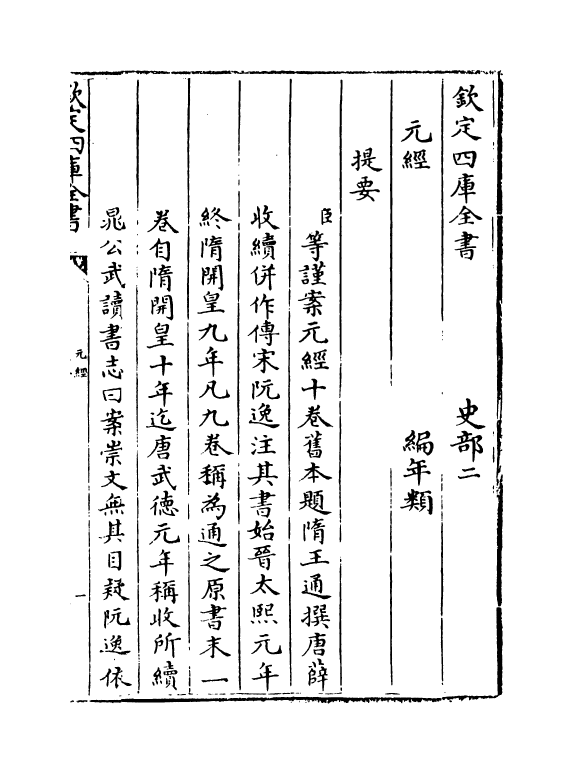 欽定四庫全書 史部二
元經 編年類
提要
臣等謹案元經十卷舊本題隋王通撰唐薛
收續併作傳宋阮逸注其書始晉太熙元年
終隋開皇九年凡九卷稱為通之原書末一
卷自隋開皇十年迄唐武德元年稱收所續
晁公武讀書志曰案崇文無其目疑阮逸依
欽定四庫全書 元經 一